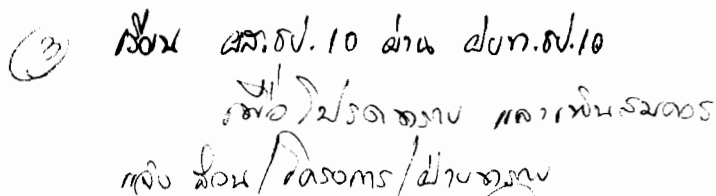 ③ เรียน ผส.ชป.10 ผ่าน ผยท.ชป.10
เพื่อโปรดทราบ และเห็นสมควร
แจ้ง ส่วน/โครงการ/ฝ่ายทราบ